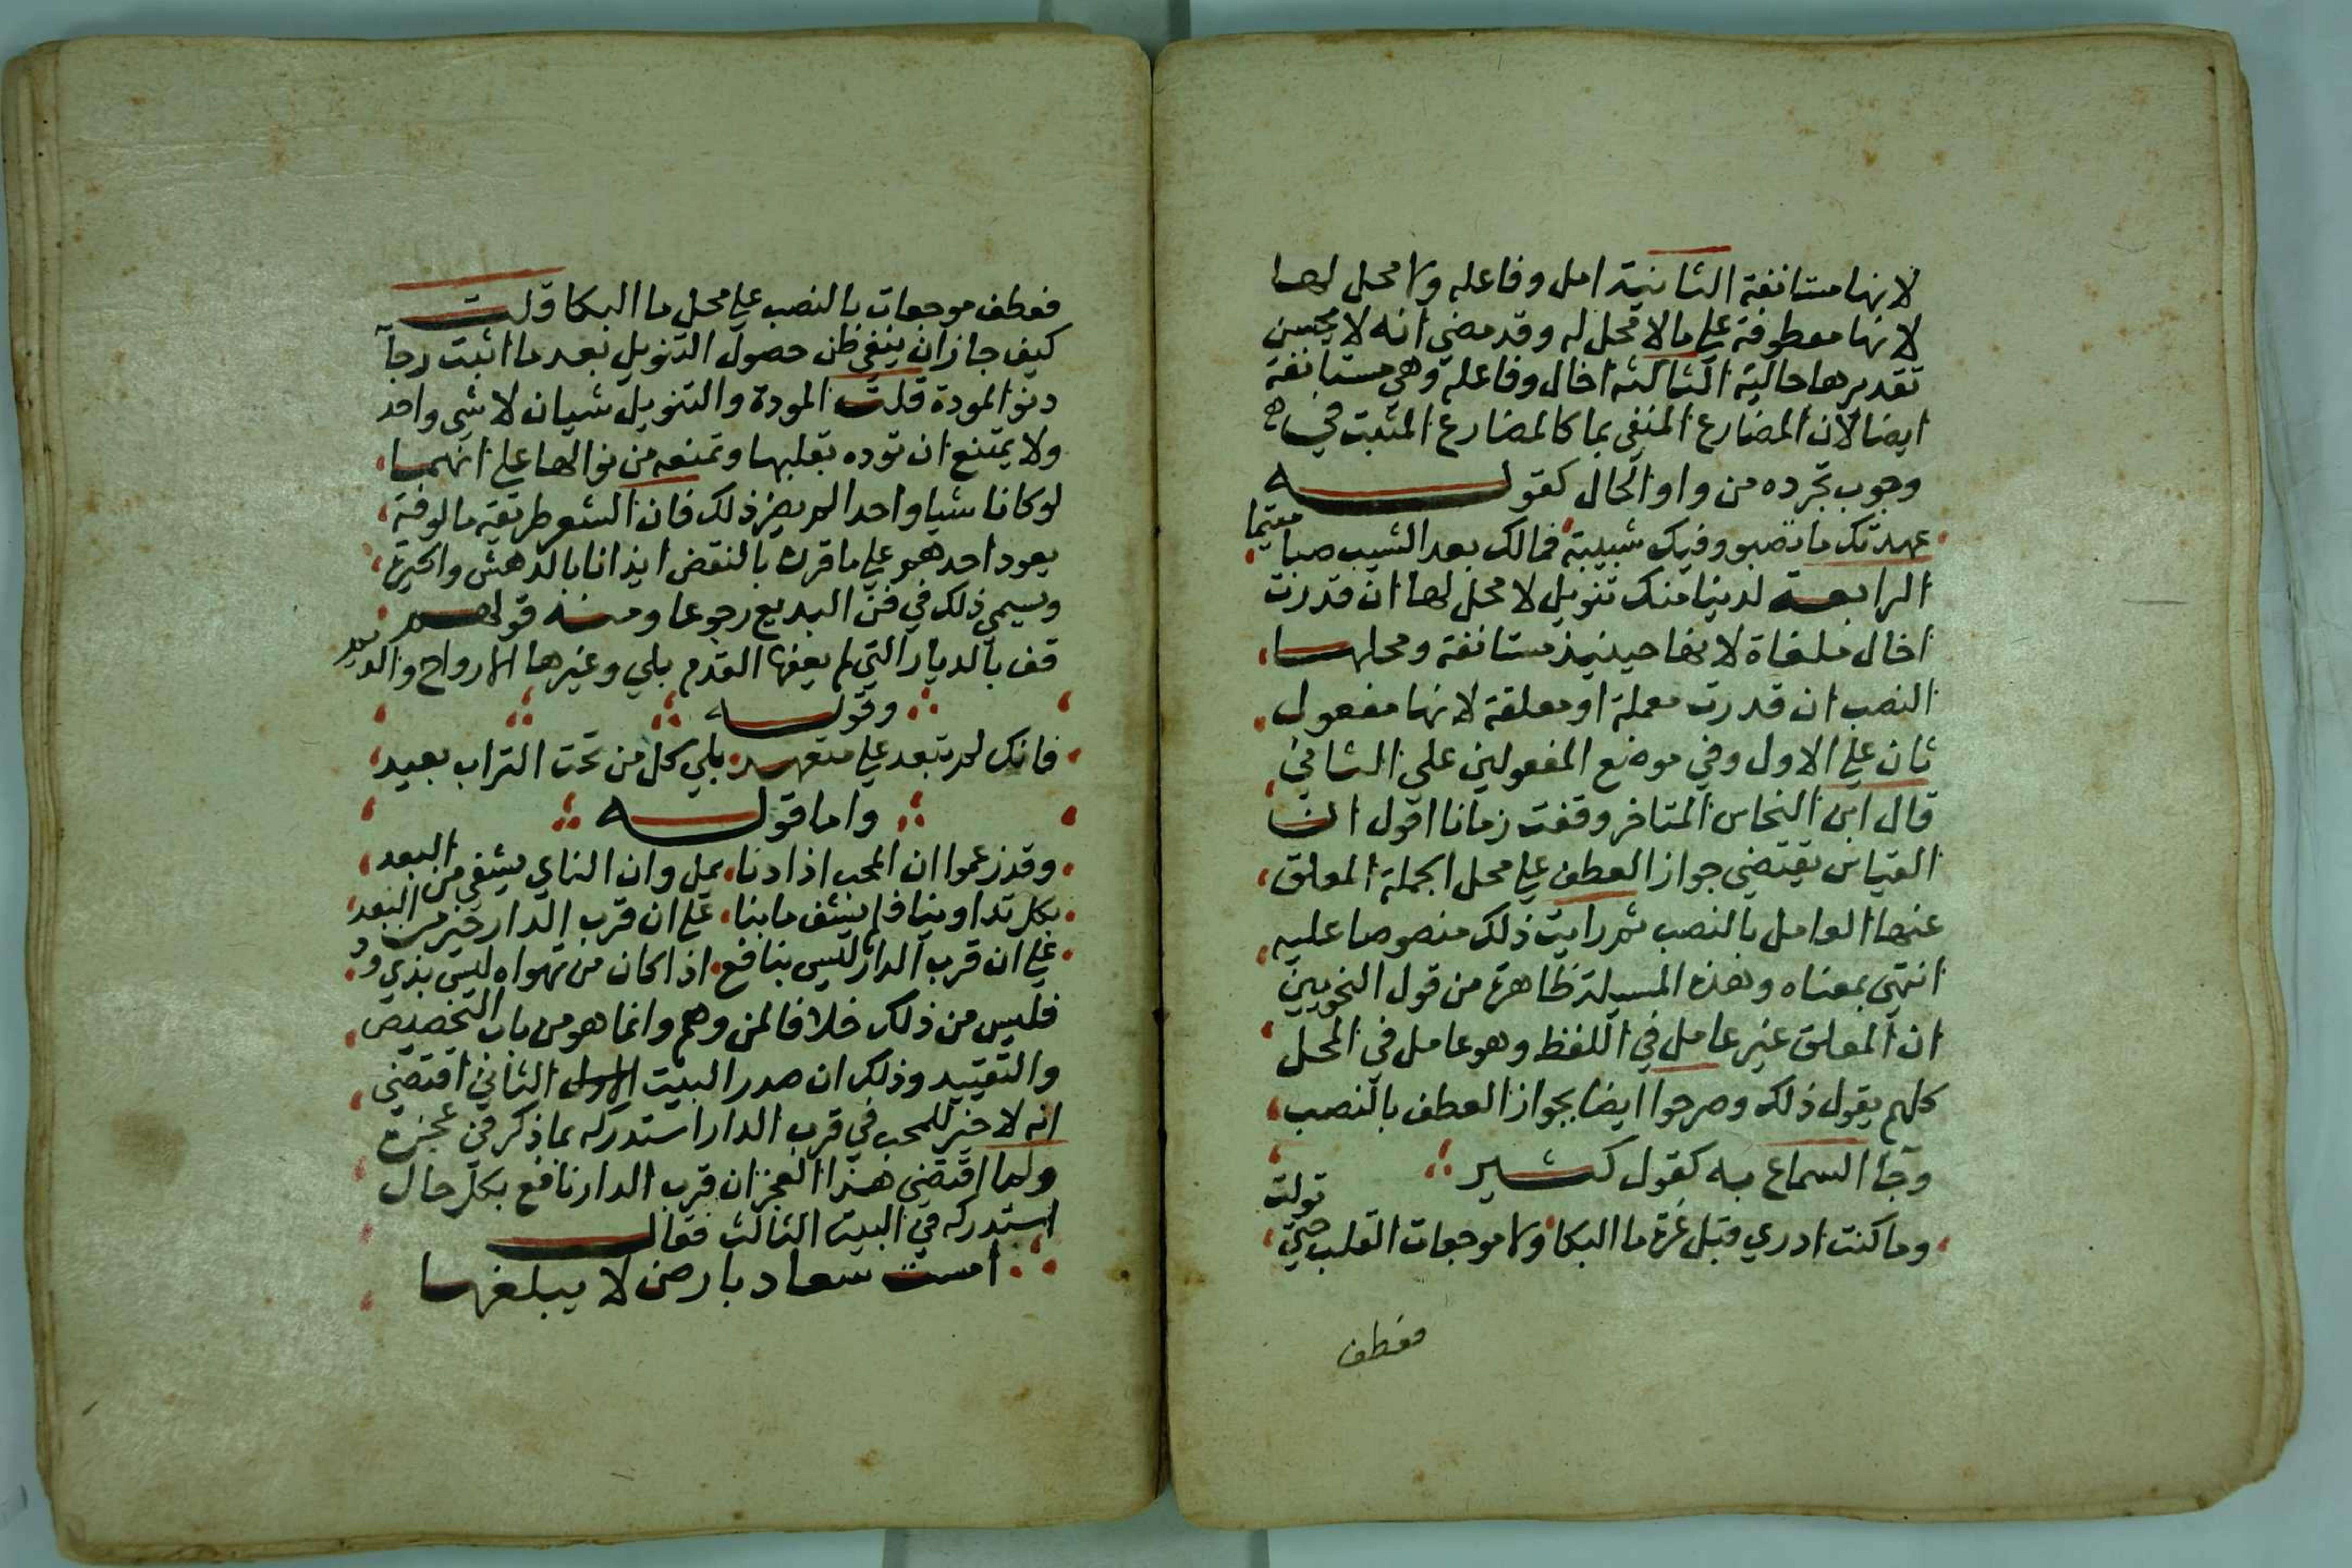 لانها مستانفة الثانية امل وفاعله ولا محل لها
لانها معطوفة علي مالا محل له وقد مضي انه لا يحسن
تقديرها حالية الثالثه اخال وفاعله وهي مستانفة
ايضا لان المضارع المنفي بما كالمضارع المثبت في
وجوب تجرده من واو الحال كقوله
عهدتك ما تصبو وفيك شبيبة فمالك بعد الشيب صبا متيما
الرابعة لدينا منك تنويل لا محل لها ان قدرت
اخال ملغاة لانها حينيذ مستانفة ومحلها
النصب ان قدرت معملة او معلقة لانها مفعول
ثان علي الاول وفي موضع المفعولين علي الثاني
قال ابن النحاس المتاخر وقفت زمانا اقول ان
القياس يقتضي جواز العطف علي محل الجملة المعلق
عنها العامل بالنصب ثم رايت ذلك منصوصا عليه
انتهي بمعناه وهذه المسيلة ظاهرة من قول النحويين
ان المعلق غير عامل في اللفظ وهو عامل في المحل
كلهم يقول ذلك وصرحوا ايضا بجواز العطف بالنصب
وجا السماع به كقول كثير
وما كنت ادري قبل عزة ما البكا ولا موجعات القلب حتي تولت
فعطف
فعطف موجعات بالنصب علي محل ما البكا قلت
كيف جاز ان ينفي ظن حصول التنويل بعد ما اثبت رجآ
دنو المودة قلت المودة والتنويل شيان لا شي واحد
ولا يمتنع ان توده بقلبها وتمنعه من نوالها علي انهما
لو كانا شيا واحدا لم يضر ذلك فان الشعر طريقة مالوفة
يعود احدهم علي ما قرره بالنقض ايذانا بالدهش والحيرة
ويسمي ذلك في فن البديع رجوعا ومنه قولهم
قف بالديار التي لم يعفها القدم بلي وغيرها الارواح والديم
وقوله
فانك لم تبعد علي متعهد بلي كل من تحت التراب بعيد
واما قوله
وقد زعموا ان المحب اذا دنا يمل وان الناي يشفي من البعد
بكل تداوينا فلم يشف ما بنا علي ان قرب الدار خير من البعد
علي ان قرب الدار ليس بنافع اذا كان من تهواه ليس بذي ود
فليس من ذلك خلافا لمن وهم وانما هو من باب التخصيص
والتقييد وذلك ان صدر البيت الاول الثاني اقتضي
انه لا خير للمحب في قرب الدار استدركه بما ذكر في عجزه
ولما اقتضي هذا العجز ان قرب الدار نافع بكل حال
استدركه في البيت الثالث فقال
امست سعاد بارض لا يبلغها